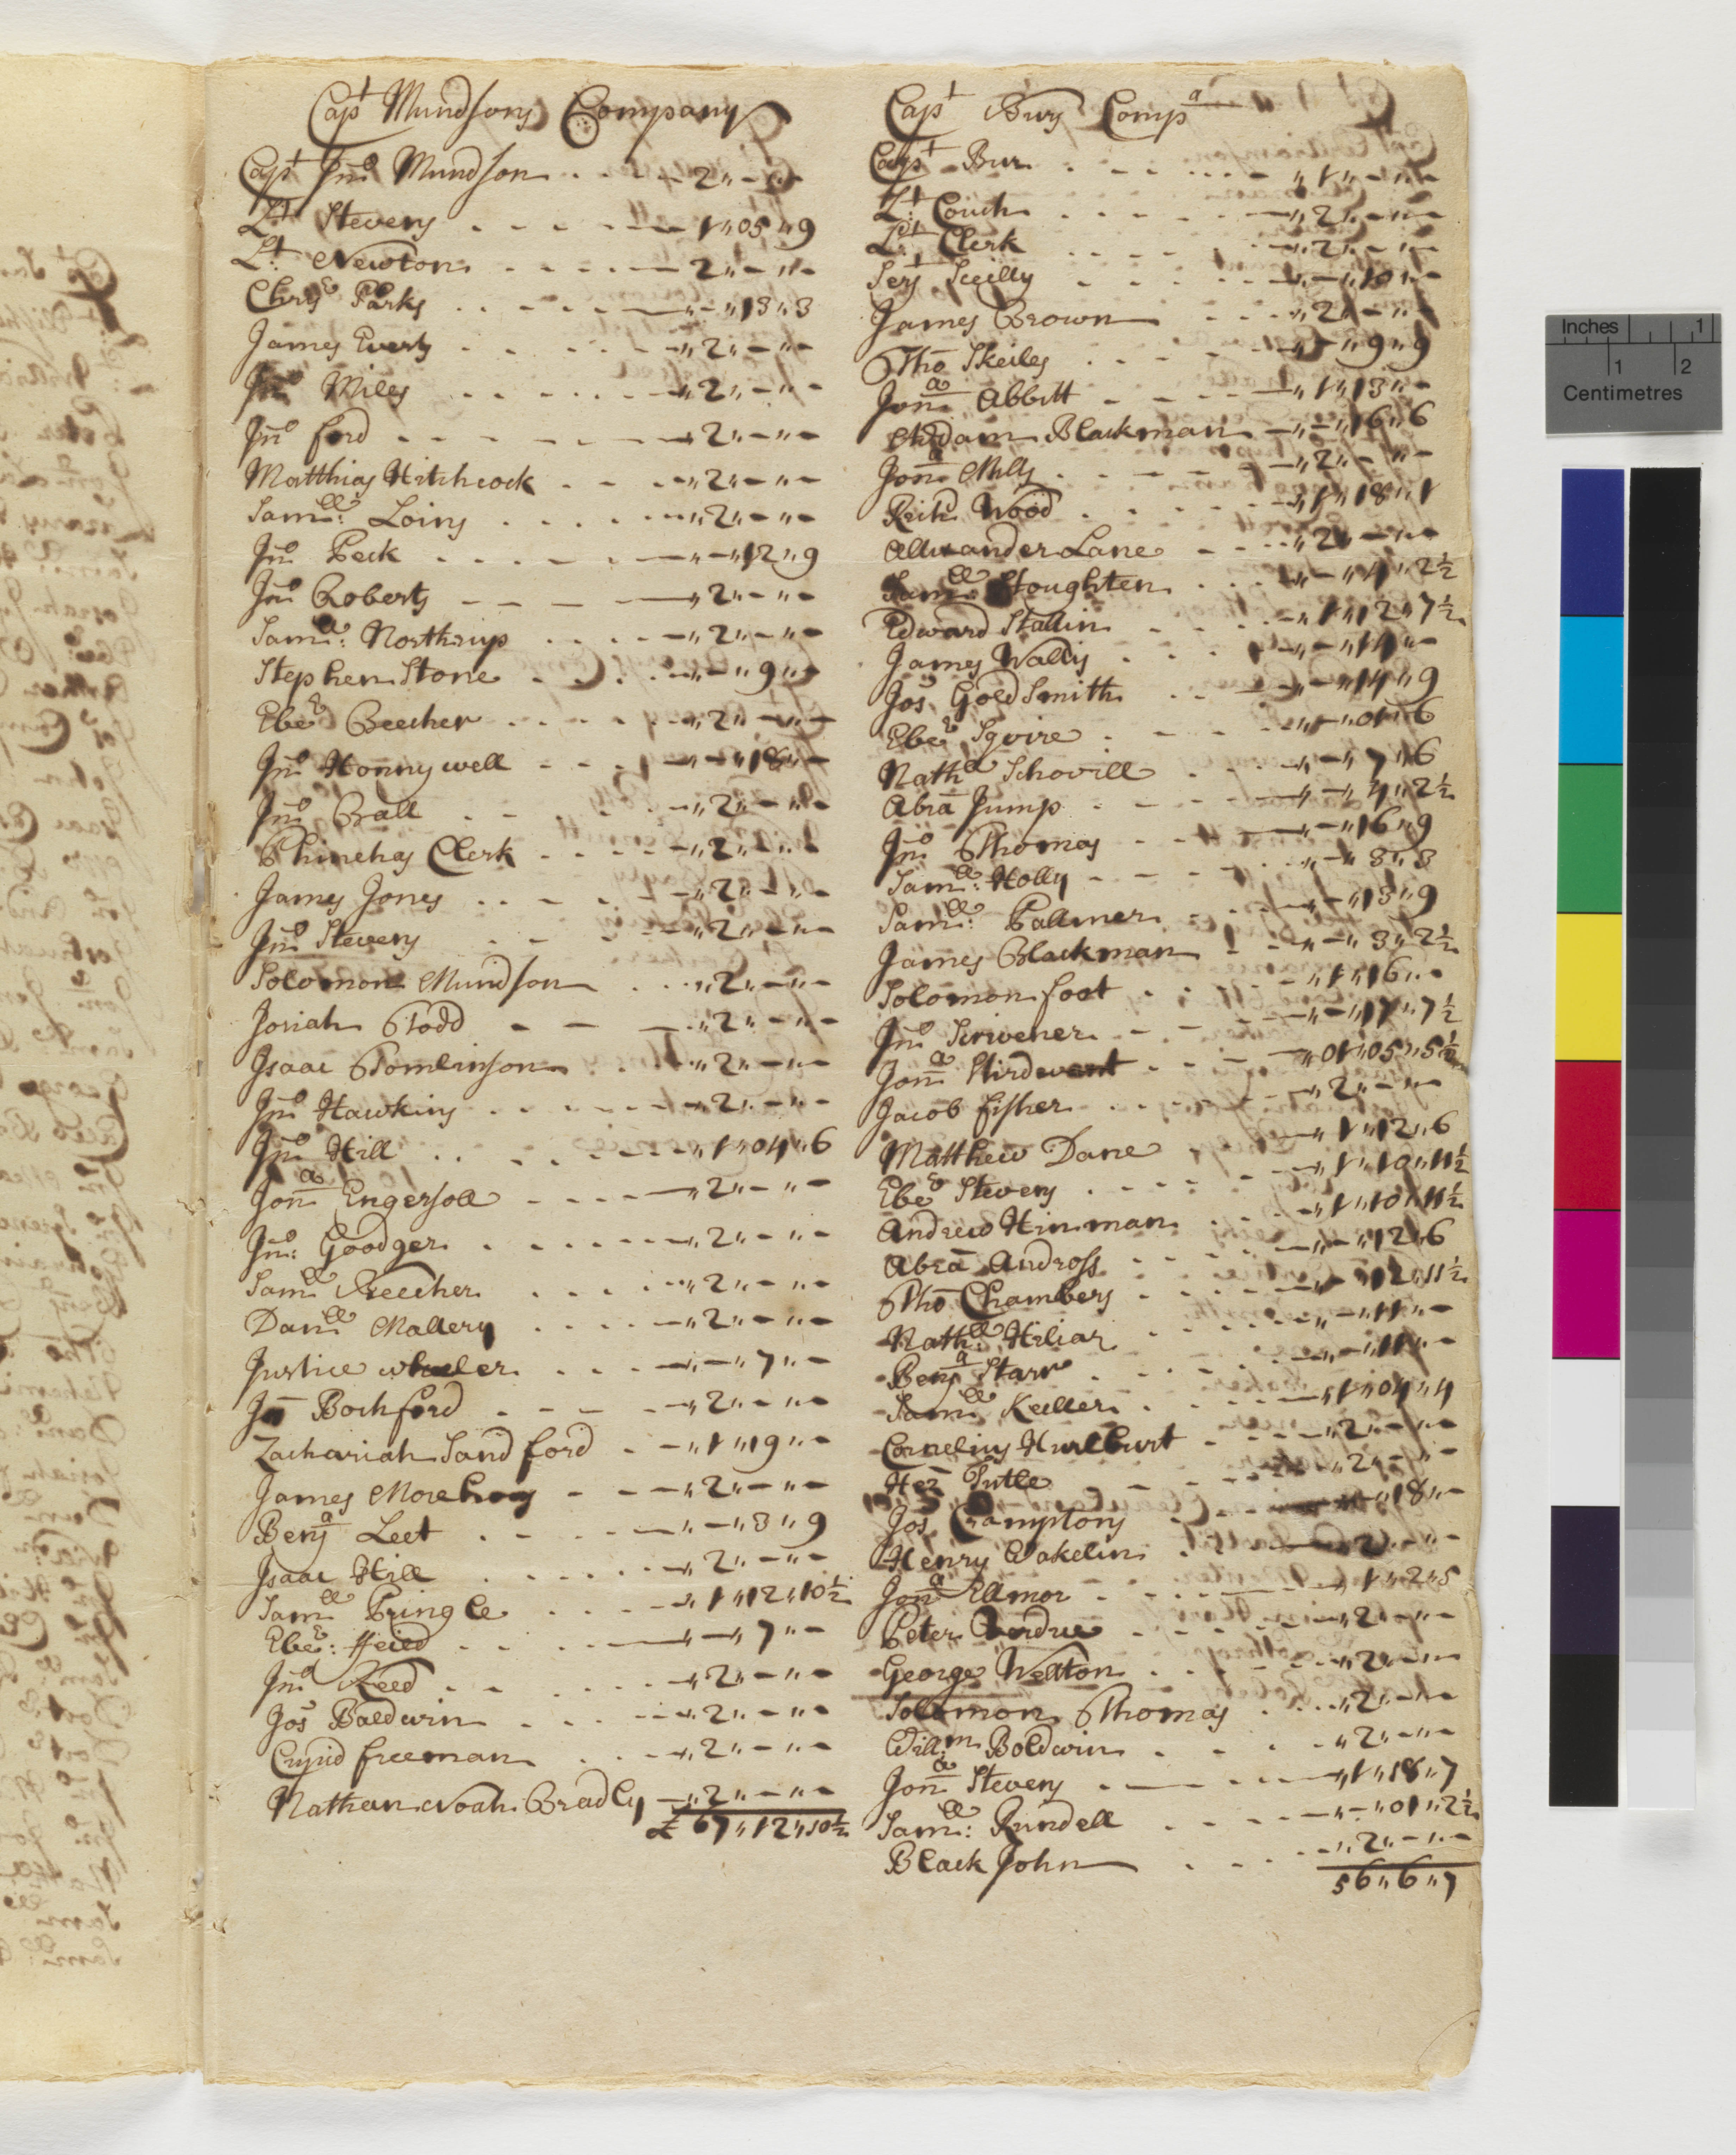 Capt Mundsons Company
Capt Jno Mundson - - - 2,, - ,, -
Lt. Stevens - - - - - 1,, 05 ,, 9
Lt. Newton - - - - - 2,, - ,, -
Chrsr Parks - - - - ,, - ,, 13 ,, 3
James Everts - - - - - ,, 2,, - ,, -
Jno Miles - - - - - ,, 2,, - ,, -
Jno ford - - - - - - ,, 2,, - ,, -
Matthias Hitchcock - - - ,, 2,, - ,, -
Samll: Loins - - - - - ,, 2,, - ,, -
Jno Peck - - - - - ,, - ,, 12 ,, 9
Jno Roberts - - - - ,, 2,, - ,, -
Samll: Northrup - - - - ,, 2,, - ,, -
Stephen Stone - - - - ,, - ,, 9 ,, -
Eber Beecher - - - - - ,, 2,, - ,, -
Jno Honnywell - - - - ,, - ,, 18 ,, -
Jno Ball - - - - - ,, 2,, - ,, -
Phinehas Clerk - - - - ,, 2,, - ,, -
James Jones - - - - - ,, 2,, - ,, -
Jno Stevens - - - - ,, 2,, - ,, -
Solomon Mundson - - - ,, 2,, - ,, -
Josiah Todd - - - ,, 2,, - ,, -
Isaac Tomlinson - - - ,, 2,, - ,, -
Jno Hawkins - - - - - ,, 2,, - ,, -
Jno Hill - - - - - - ,, 1 ,, 04 ,, 6
Jona Engersoll - - - - ,, 2,, - ,, -
Jno: Goodger - - - - - ,, 2,, - ,, -
Samll Beecher - - - - ,, 2,, - ,, -
Danll Mallery - - - - ,, 2,, - ,, -
Justice wheeler - - - - ,, - ,, 7 ,, -
Jn Bochford - - - - ,, 2,, - ,, -
Zachariah Sandford - - ,, 1 ,, 19 ,, -
James - - - ,, 2,, - ,, -
Benja Leet - - - - ,, - ,, 8 ,, 9
Isaac Hill - - - - - ,, 2,, - ,, -
Samll Pringle - - - ,, 1 ,, 12 ,, 10½
Eber: - - - - ,, - ,, 7 ,, -
Jno Reed - - - - - ,, 2,, - ,, -
Jos Baldwin - - - - ,, 2,, - ,, -
Cupid freeman - - - ,, 2,, - ,, -
Nathan Noah Bradly - ,, 2,, - ,, -
£ 67 ,, 12 ,, 10½
Capt Burs Compa
Capt Bur - - - - - ,, 1 ,, - ,, -
Lt: Couch - - - - - ,, 2,, - ,, -
Lt Clerk - - - - - ,, 2,, - ,, -
Serjt - - - - ,, - ,, 10 ,, -
James Brown - - - ,, 2,, - ,, -
Tho Skeiles - - - - ,, - ,, 9 ,, 9
Jona Abbitt - - - - ,, 1 ,, 13 ,, -
Addam Blackman - ,, - ,, 16 ,, 6
Jona Mills - - - - ,, 2,, - ,, -
Richd Wood - - - - ,, 1 ,, 18 ,, 1
Allexander Lane - - - ,, 2,, - ,, -
Samll Stoughten - - - ,, - ,, 4 ,, 2½
Edward Stallin - - - - ,, 1 ,, 12 ,, 7½
James Wallis - - - ,, - ,, 11 ,, -
Jos Goldsmith - - - ,, - ,, 14 ,, 9
Eber Sqvire - - - - ,, - ,, 01 ,, 6
Nathll Schovill - - - ,, - ,, 7 ,, 6
Abra Jump - - - - ,, - ,, 4 ,, 2½
Jno Thomas - - - ,, - ,, 16 ,, 9
Samll: Holly - - - - ,, - ,, 8 ,, 3
Samll: Pallmer - - - ,, - ,, 13 ,, 9
James Blackman - - ,, - ,, 3 ,, 2½
Solomon foot - - - - ,, 1 ,, 16 ,, -
Jno Scrivener - - - ,, - ,, 17 ,, 7½
Jona Stirdevant - - - ,, 01 ,, 05 ,, 5½
Jacob fisher - - - - ,, 2,, - ,, -
Matthew Dane - - ,, 1 ,, 12 ,, 6
Eber Stevens - - - - ,, 1 ,, 10 ,, 11½
Andrew Hinman - - - ,, 1 ,, 10 ,, 11½
Abra Andross - - - - ,, - ,, 12 ,, 6
Tho Chambers - - - - ,, - ,, 12 ,, 11½
Nathll: Hiliar - - - ,, - ,, 11 ,, -
Benja Starr - - - - ,, - ,, 11 ,, -
Samll Keeller - - - - ,, 1 ,, 04 ,, 4
Cornelius Hurlburt - - - ,, 2,, - ,, -
Hez Tutle - - - ,, 2,, - ,, -
Jos Cramptons - - - ,, 18 ,, -
Henry Wakelin - - - ,, 2,, - ,, -
Jona Ellmor - - - - ,, 1 ,, 2 ,, 5
Peter - - - - ,, 2,, - ,, -
George Welton - - - - ,, 2,, - ,, -
Solomon Thomas - - - ,, 2,, - ,, -
Willm Boldwin - - - ,, 2,, - ,, -
Jona Stevens - - - ,, 1 ,, 18 ,, 7
Samll: Rundell - - - ,, - ,, 01 ,, 2½
Black John - - - ,, 2,, - ,, -
56 ,, 6 ,, 7
Inches 1
1 2
Centimetres